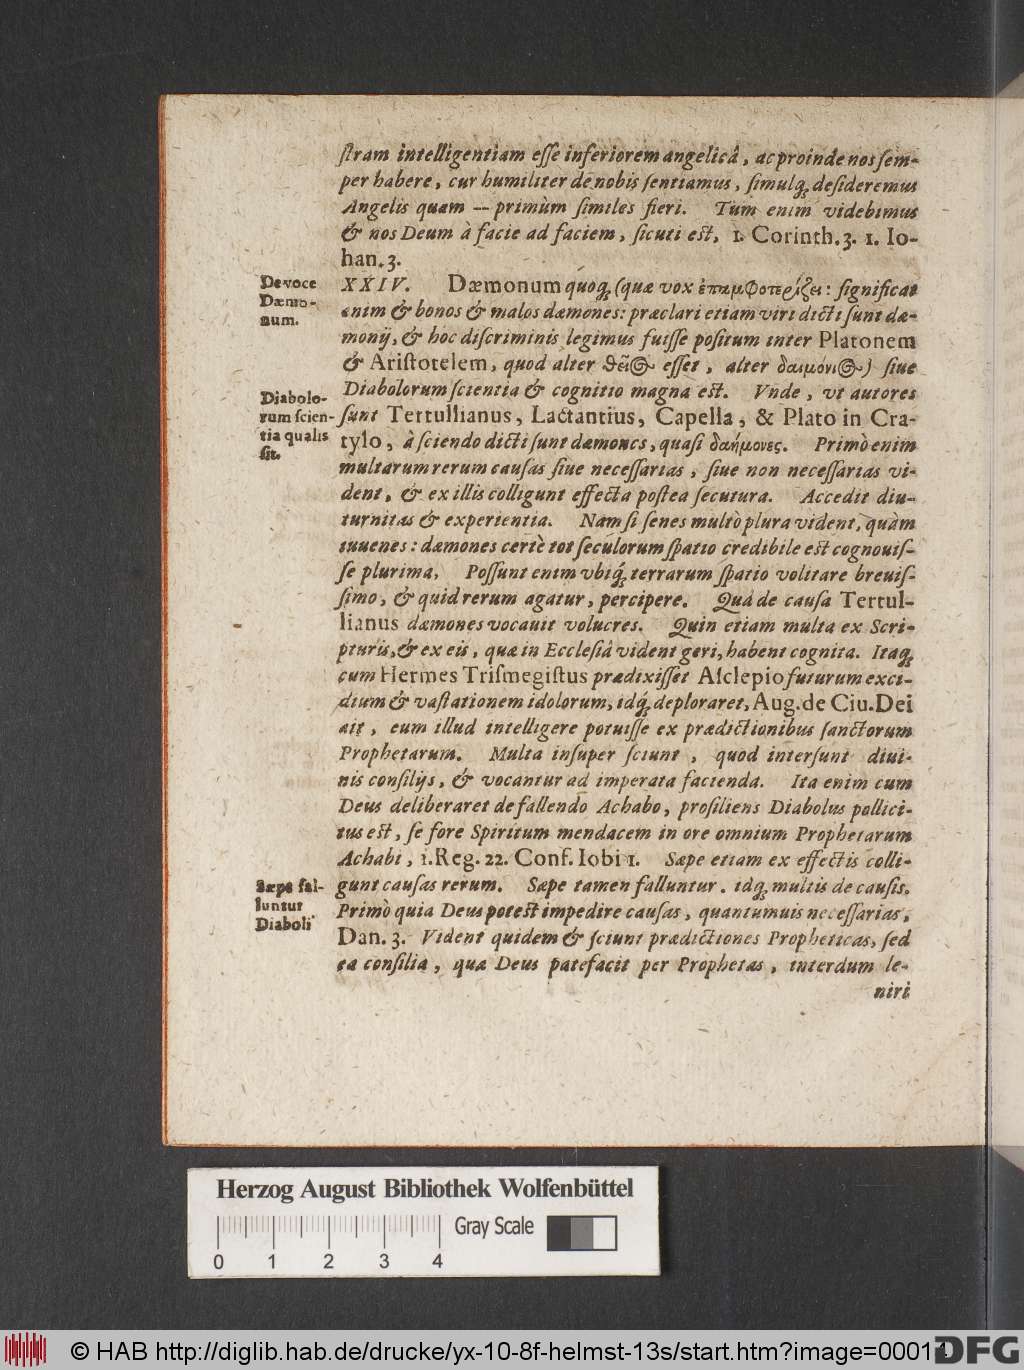 ſtram intelligentiam eſſe inferiorem angelicâ, ac proinde nos ſem-
per habere, cur humiliter de nobis ſentiamus, ſimulq́; deſideremus
Angelis quam -- primùm ſimiles fieri. Tum enim videbimus
& nos Deum à facie ad faciem, ſicuti eſt, 1. Corinth. 3. 1. Io-
han. 3.
De voce
Dæmo-
num.
XXIV. Dæmonum quoq́; (quæ vox ἐπαμφοτερίζει: ſignificat
enim & bonos & malos dæmones: præclari etiam viri dicti ſunt dæ-
monij, & hoc diſcriminis legimus fuiſſe poſitum inter Platonem
& Ariſtotelem, quod alter θεῖος eſſet, alter δαιμόνιος) ſiue
Diabolo-
rum ſcien-
tia qualis
ſit.
Diabolorum ſcientia & cognitio magna eſt. Vnde, vt autores
ſunt Tertullianus, Lactantius, Capella, & Plato in Cra-
tylo, à ſciendo dicti ſunt dæmones, quaſi δαήμονες. Primò enim
multarum rerum cauſas ſiue neceſſarias, ſiue non neceſſarias vi-
dent, & ex illis colligunt effecta poſtea ſecutura. Accedit diu-
turnitas & experientia. Nam ſi ſenes multò plura vident, quàm
iuuenes: dæmones certè tot ſeculorum ſpatio credibile eſt cognouiſ-
ſe plurima. Poſſunt enim vbiq́; terrarum ſpatio volitare breuiſ-
ſimo, & quid rerum agatur, percipere. Quâ de cauſa Tertul-
lianus dæmones vocauit volucres. Quin etiam multa ex Scri-
pturis, & ex eis, quæ in Eccleſiâ vident geri, habent cognita. Itaq́;
cum Hermes Triſmegiſtus prædixiſſet Aſclepio futurum exci-
dium & vaſtationem idolorum, idq́; deploraret, Aug. de Ciu. Dei
ait, eum illud intelligere potuiſſe ex prædictionibus ſanctorum
Prophetarum. Multa inſuper ſciunt, quod interſunt diui-
nis conſilijs, & vocantur ad imperata facienda. Ita enim cum
Deus deliberaret de fallendo Achabo, proſiliens Diabolus pollici-
tus eſt, ſe fore Spiritum mendacem in ore omnium Prophetarum
Achabi, 1. Reg. 22. Conf. Iobi 1. Sæpe etiam ex effectis colli-
Sæpe fal-
luntur
Diaboli
gunt cauſas rerum. Sæpe tamen falluntur. idq́; multis de cauſis.
Primò quia Deus poteſt impedire cauſas, quantumuis neceſſarias,
Dan. 3. Vident quidem & ſciunt prædictiones Propheticas, ſed
ea conſilia, quæ Deus patefacit per Prophetas, interdum le-
niri
Herzog August Bibliothek Wolfenbüttel
Gray Scale
0 1 2 3 4
© HAB http://diglib.hab.de/drucke/yx-10-8f-helmst-13s/start.htm?image=00014
DFG